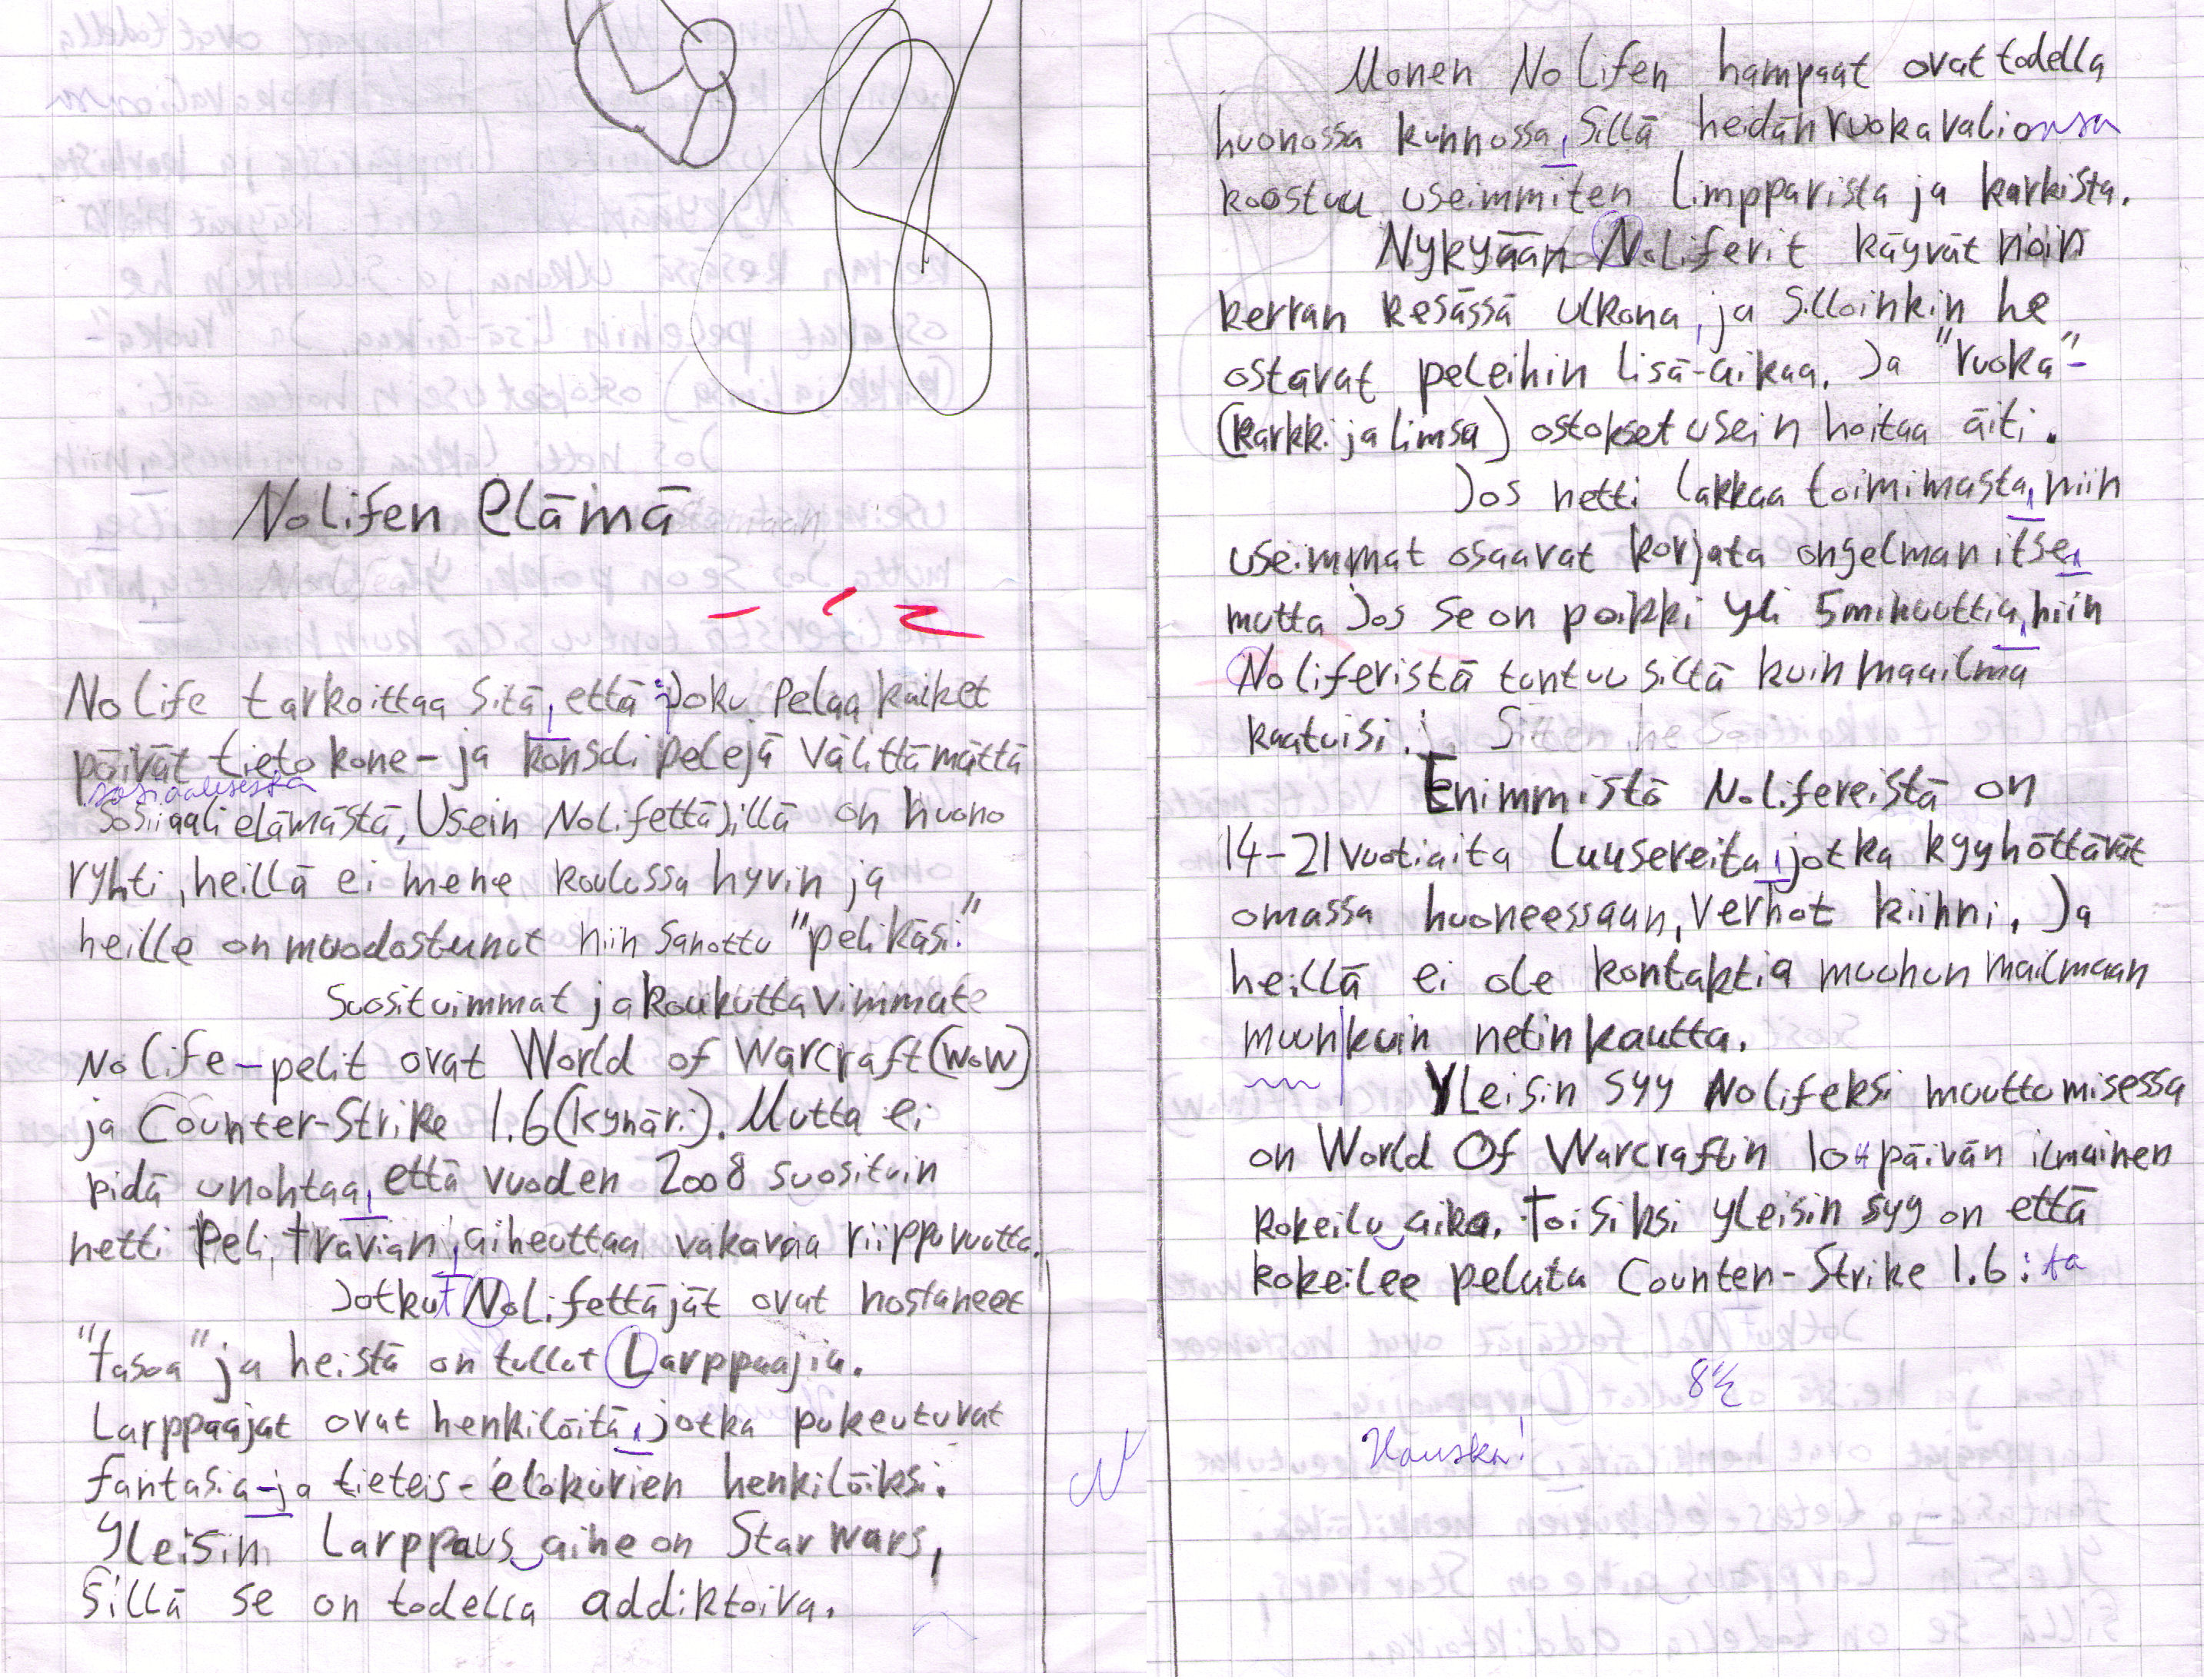 Nolifen elämä
No life tarkoittaa sitä, että joku pelaa kaiket
päivät tietokone- ja konsolipelejä välittämättä
sosiaalisesta
sosiaali elämästä, Usein Nolifettäjillä on huono
ryhti, heillä ei mene koulussa hyvin ja
heille on muodostunut niin sanottu "pelikäsi."
Suosituimmat ja koukuttavimmat
No life-pelit ovat World of Warcraft (WoW)
ja Counter-Strike 1.6 (kynäri). Mutta ei
pidä unohtaa, että vuoden 2008 suosituin
netti peli, travian, aiheuttaa vakavaa riippuvuutta.
Jotkut Nolifettäjät ovat nostaneet
"tasoa" ja heistä on tullut Larppaajia.
Larppaajat ovat henkilöitä, jotka pukeutuvat
fantasia- ja tieteis-elokuvien henkilöiksi.
Yleisin Larppaus aihe on Star wars,
Sillä se on todella addiktoiva.
Monen No lifen hampaat ovat todella
huonossa kunnossa, Sillä heidän ruokavalionsa
koostuu useimmiten limpparista ja karkista.
Nykyään Noliferit käyvät noin
kerran kesässä ulkona, ja silloinkin he
ostavat peleihin lisä-aikaa. Ja "ruoka"-
(karkki ja limsa) ostokset usein hoitaa äiti.
Jos netti lakkaa toimimasta, niin
useimmat osaavat korjata ongelman itse,
mutta Jos se on poikki yli 5 minuuttia, niin
Noliferistä tuntuu siltä kuin maailma
kaatuisi.
Enimmistö Nolifereistä on
14-21 vuotiaita Luusereita, jotka kyyhöttävät
omassa huoneessaan, verhot kiinni. Ja
heillä ei ole kontaktia muuhun mailmaan
muun kuin netin kautta.
Yleisin syy Nolifeksi muuttumisessa
on World Of Warcraftin 10 päivän ilmainen
kokeilu aika. toisiksi yleisin syy on että
kokeilee peluta Counter-Strike 1.6:ta
8½
Hauska!